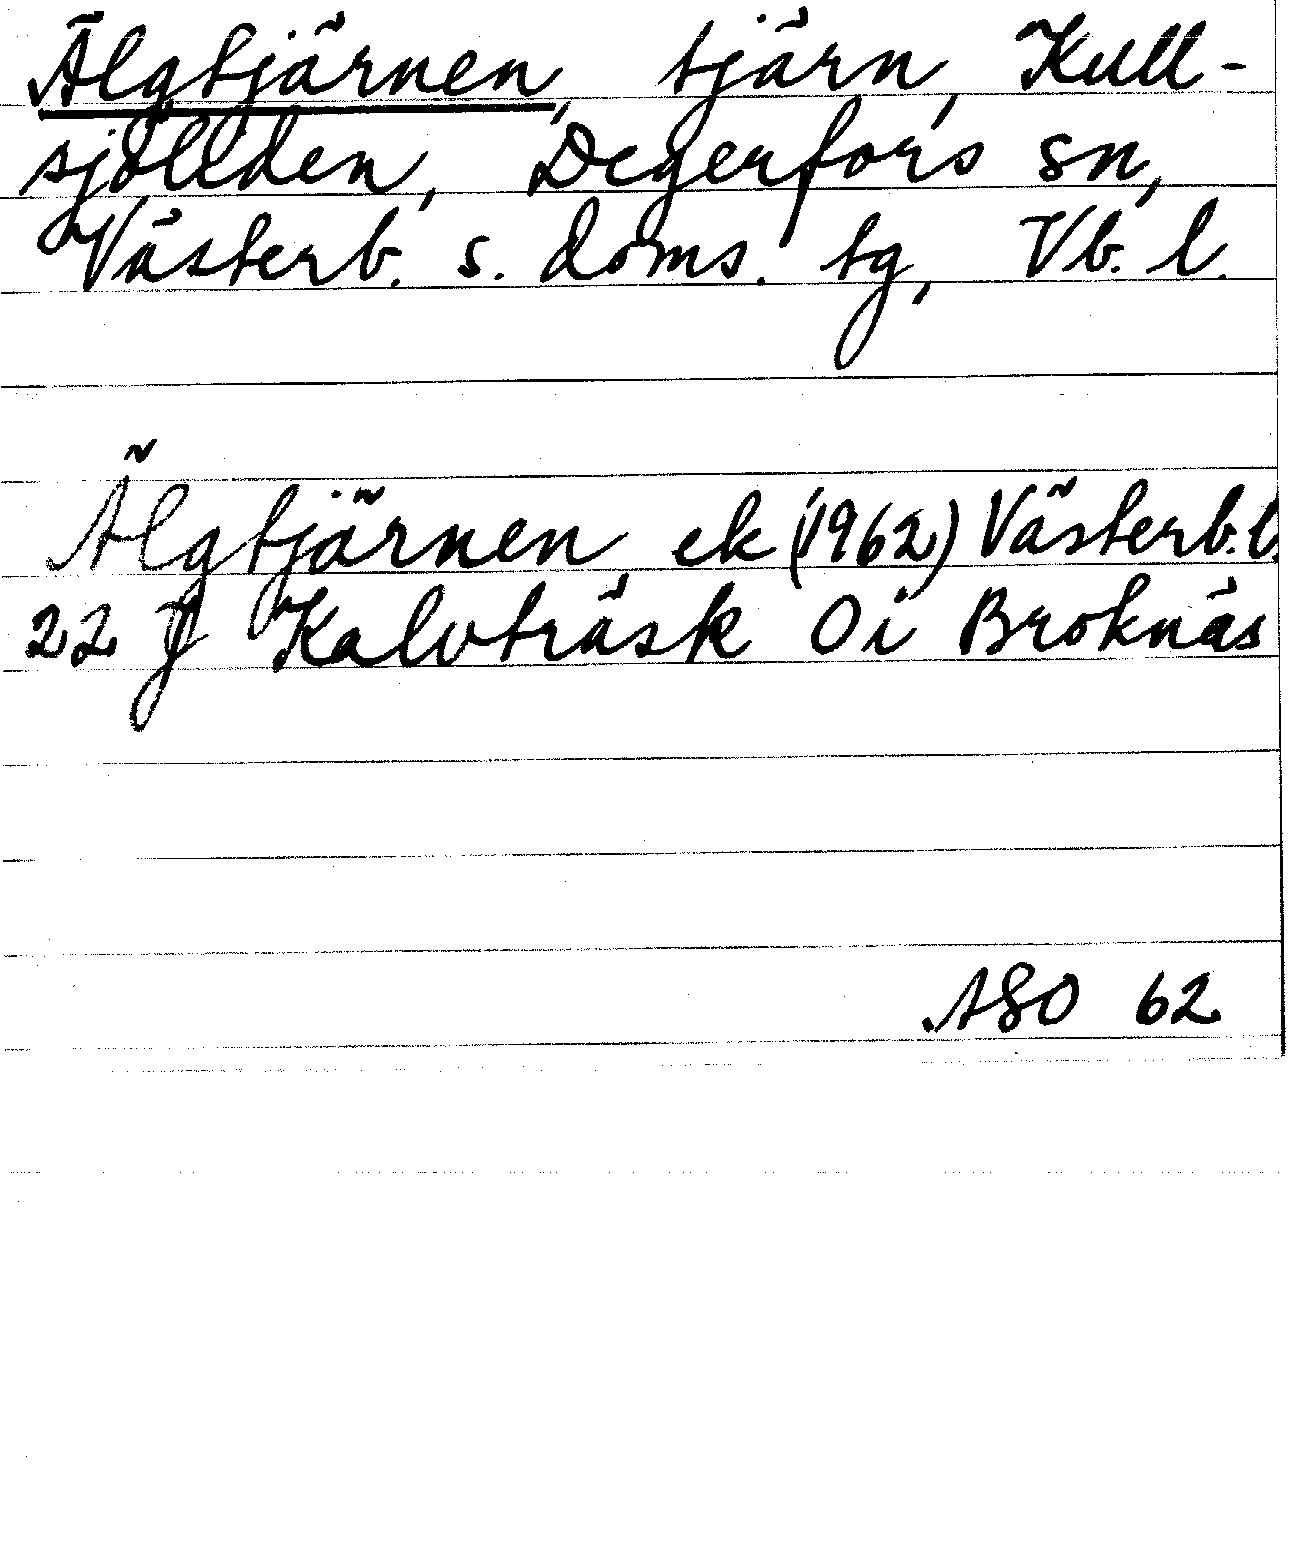 Älgtjärnen, tjärn, Kull-
sjöliden, Degerfors sn,
Västerb. s. doms. tg, Vb. l.
Älgtjärnen, ek (1962) Västerb. l.
22 J Kalvträsk 0 i Broknäs
ASO 62